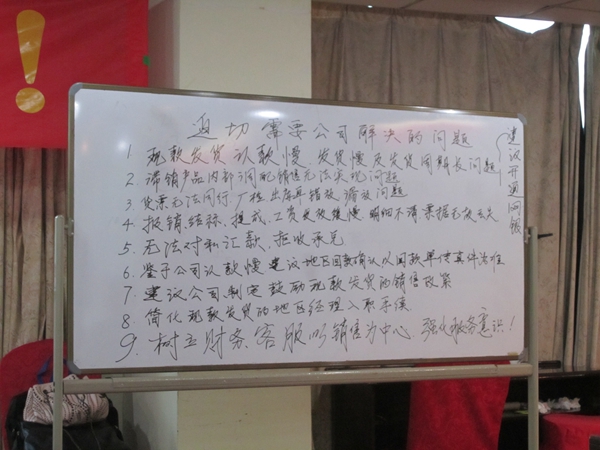 ！
迫切需要公司解决的问题
1 现款发货认款慢、发货慢及发货周期长问题
2 滞销产品内部调配销售无法实现问题
3 货票无法同行、厂检、出库单错放漏放问题
4 报销、结称、提成、工资发放缓慢 明细不清票据无故丢失
5 无法对私汇款、拒收承兑
6 鉴于公司认款慢 建议地区回款确认以回款单传真件为准
7 建议公司制定鼓励现款发货的销售政策
8 简化现款发货的地区经理入职手续
9. 树立财务、客服以销售为中心、强化服务意识！
建议开通网银